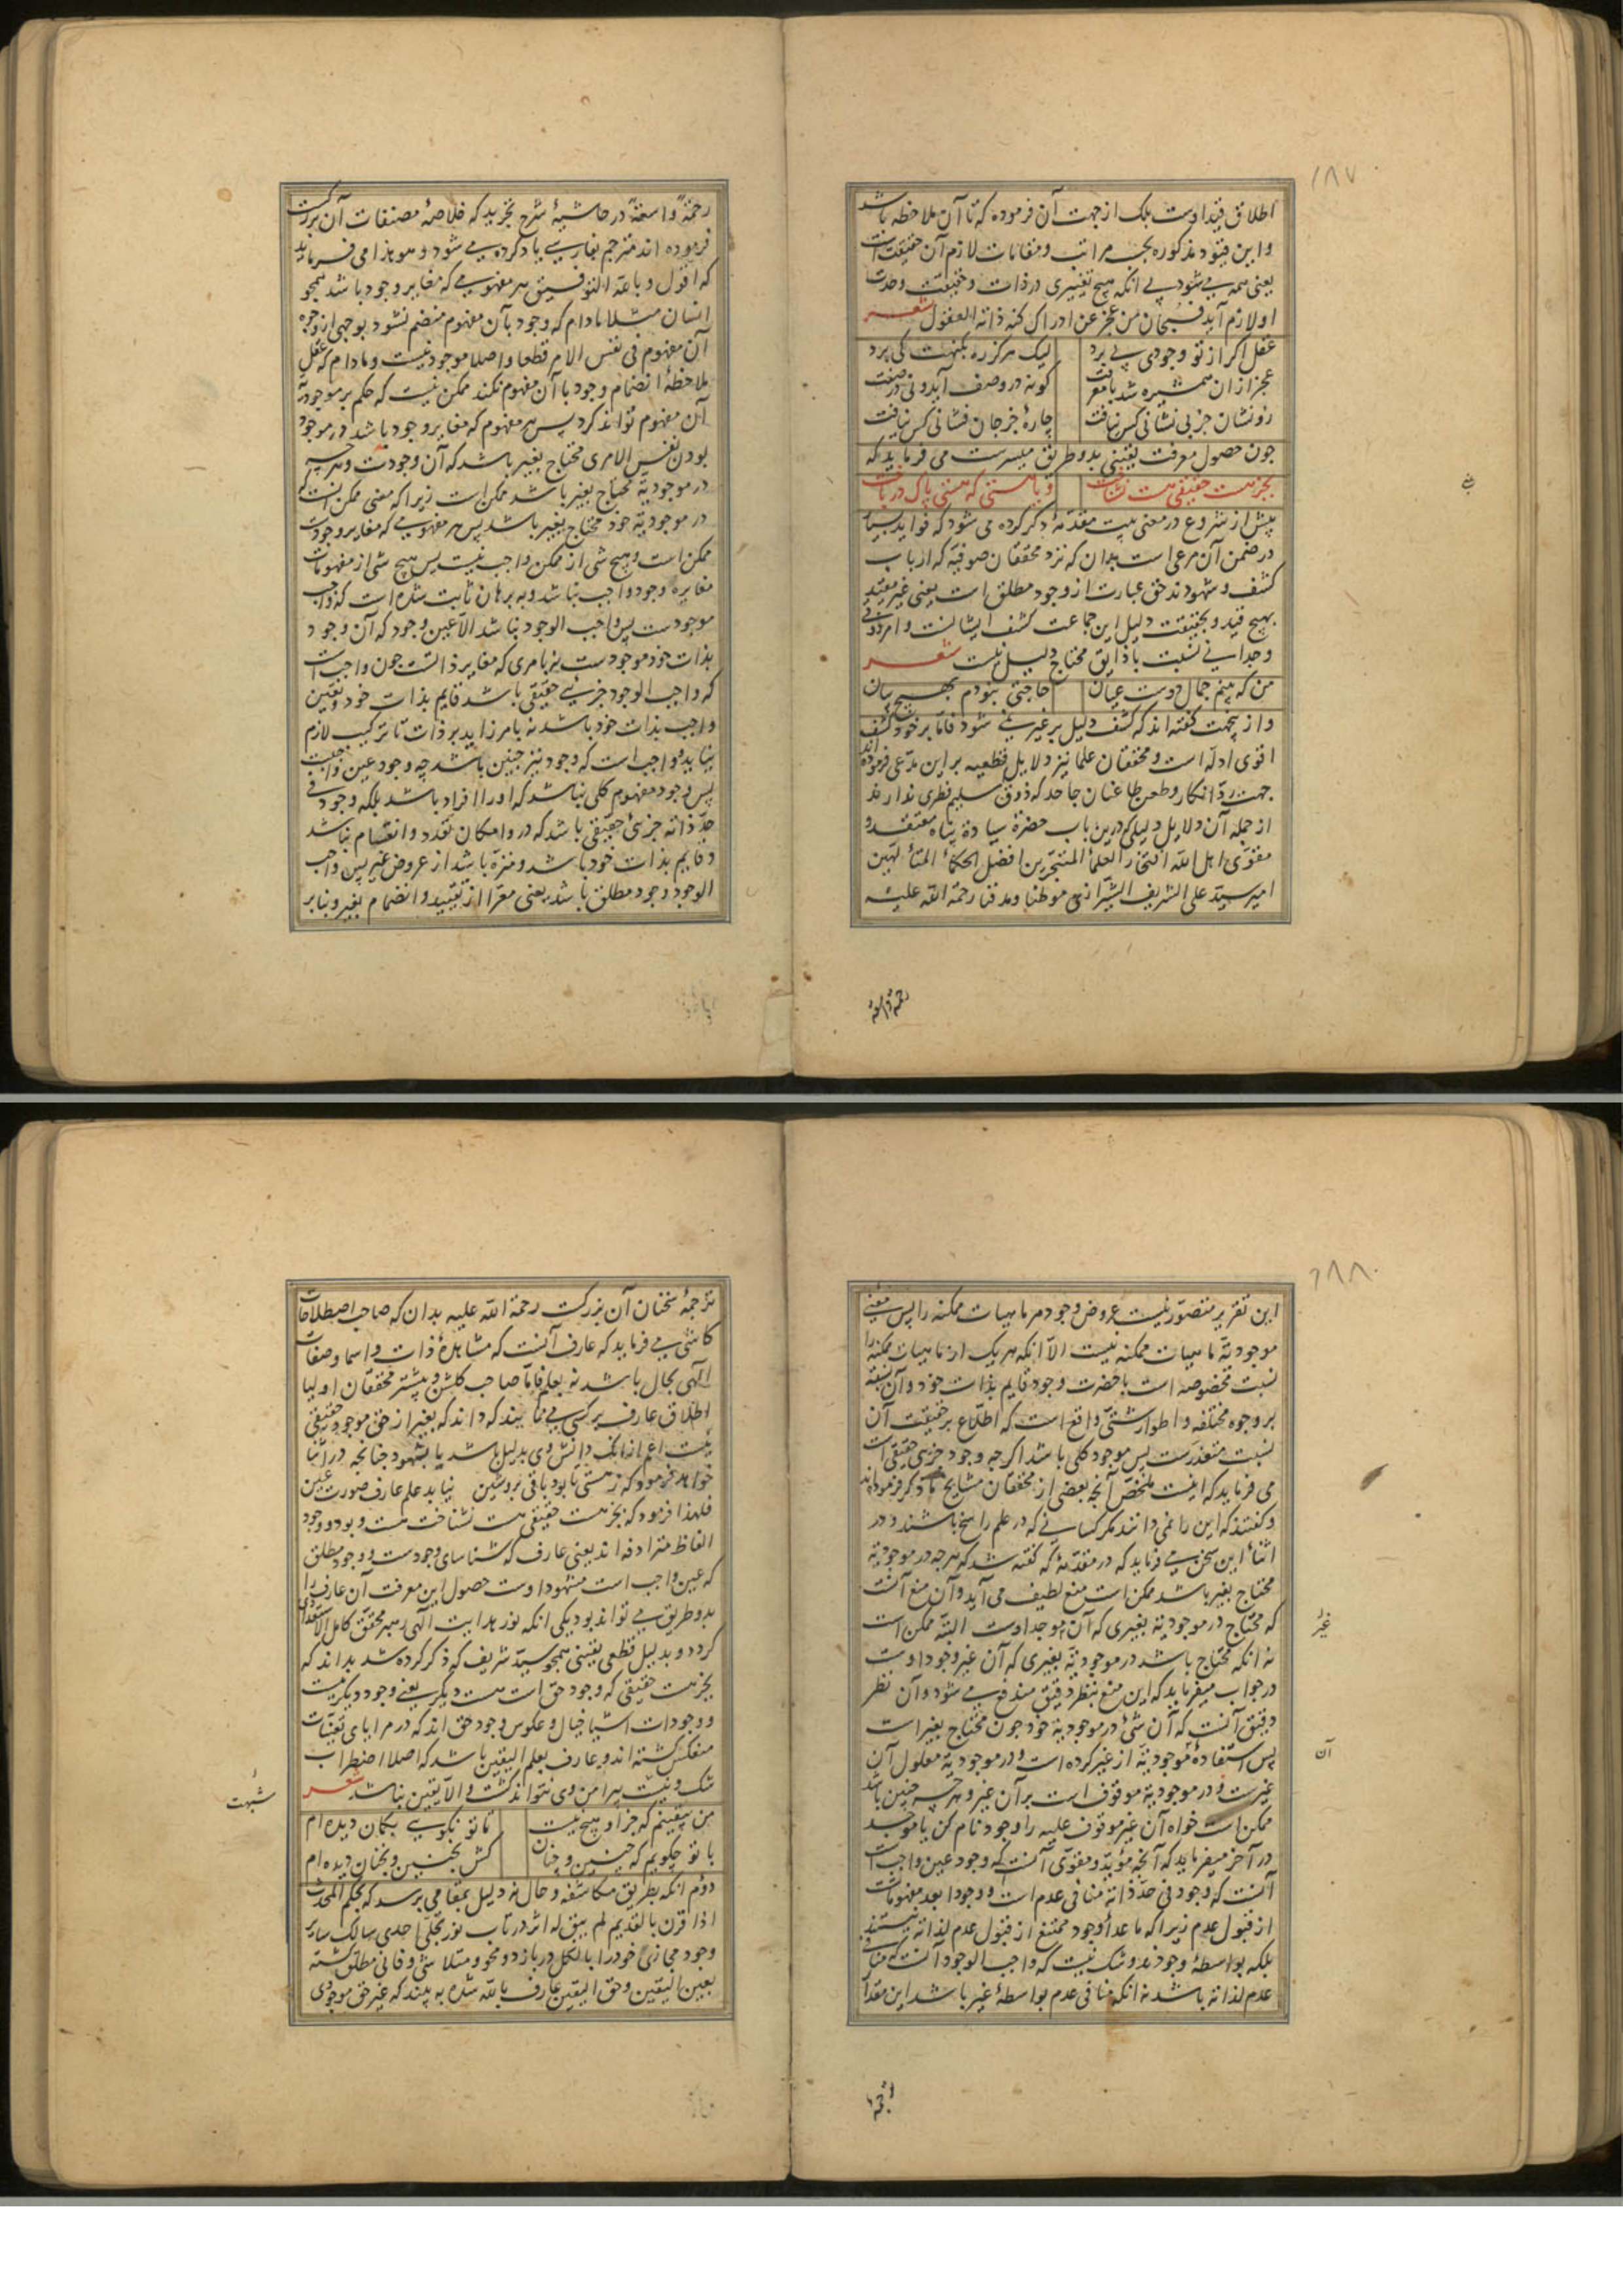 ١٨٧
اطلاق قید اوست بلک از جهت آن فرموده که تا آن ملاحظه باشد
و این قیود مذکوره بحسب مراتب و مقامات لازم آن حقیقت است
یعنی همه می شود بی انکه هیچ تغییری در ذات و حقیقت وحدت
او لازم آید فسبحان من عجز عن ادراک کنه ذاته العقول شعر
عقل اکر از تو وجودی پی برد لیک هرکز ره بکنهت کی برد
عجز از ان همشیره شد با معرفت کو نه در وصف آید و نی در صفت
زو نشان جز بی نشانی کس نیافت چارۀ جز جان فشانی کس نیافت
جون حصول معرفت یقینی بدو طریق میسرست می فرماید که
بجز هست حقیقی هست نشناخت و یا هستی که هستی پاک در باخت
پیش از شروع در معنی بیت مقدمۀ ذکر کرده می شود که فواید بسیار
در ضمن آن مرعی است بدان که نزد محققان صوفیه که ارباب
کشف و شهودند حق عبارت از وجود مطلق است یعنی غیر مقید
بهیچ قید و بحقیقت دلیل این جماعت کشف ایشانست و امر ذوقی
وجدانی نسبت با ذایق محتاج دلیل نیست شعر
من که بینم جمال دوست عیان حاجتی نبودم بهیچ بیان
و از پنجت کفته اند که کشف دلیل بر غیر نمی شود فاما بر خود کشف
اقوی ادله است و محققان علما نیز دلایل قطعیه بر این مدعی فرموده اند
جهت رد انکار و طعن طاعنان جاحد که ذوق سلیم فطری ندارند
از جمله آن دلایل دلیلی که درین باب حضرة سیادة پناه معتقد و
مقوی اهل الله افتخار العلماء المتبحرین افضل الحکماء المتألهین
امیر سید علی الشریف الشیرازی موطنا و مدفنا رحمة الله علیه
رحمة واسعة
رحمة واسعة در حاشیۀ شرح تجرید که خلاصۀ مصنفات آن بزرکست
فرموده اند مترجم بفارسی یاد کرده می شود و هو هذا می فرماید
که اقول و بالله التوفیق هر مفهومی که مغایر وجود باشد همجو
انسان مثلا مادام که وجود بآن مفهوم منضم نشود بوجهی از وجوه
آن مفهوم فی نفس الامر قطعا و اصلا موجود نیست و مادام که عقل
ملاحظۀ انضمام وجود با آن مفهوم نکند ممکن نیست که حکم بر موجودیة
آن مفهوم تواند کرد پس هر مفهوم که مغایر وجود باشد در موجود
بودن نفس الامری محتاج بغیر باشد که آن وجودست و هر چه
در موجودیة محتاج بغیر باشد ممکن است زیرا که معنی ممکن انست که
در موجودیة خود محتاج بغیر باشد پس هر مفهومی که مغایر وجودست
ممکن است و هیچ شی از ممکن واجب نیست پس هیچ شی از مفهومات
مغایره وجود واجب نباشد و به برهان ثابت شده است که واجب
موجودست پس واجب الوجود نباشد الا عین وجود که آن وجود
بذات خود موجودست نه بامری که مغایر ذاتست جون واجب است
که واجب الوجود جزئی حقیقی باشد قایم بذات خود و تعین
واجب بذات خود باشد نه بامر زاید بر ذات تا ترکیب لازم
نیاید و واجب است که وجود نیز جنین باشد چه وجود عین واجبست
پس وجود مفهوم کلی نباشد که او را افراد باشد بلکه وجود فی
حد ذاته جزئی حقیقی باشد که درو امکان تعدد و انقسام نباشد
و قایم بذات خود باشد و منزه باشد از عروض غیر پس واجب
الوجود وجود مطلق باشد یعنی معرا از تقیید و انضمام بغیر و بنابر
١٨٨
این تقریر متصور نیست عروض وجود مر ماهیات ممکنه را پس معنی
موجودیة ماهیات ممکنه نیست الا انکه هر یک از ماهیات ممکنه را
نسبت مخصوصه است با حضرت وجود قایم بذات خود و آن نسبته
بر وجوه مختلفه و اطوار شتی واقع است که اطلاع بر حقیقت آن
نسبت متعذرست پس موجود کلی باشد اکر جه وجود جزئی حقیقی است
می فرماید که اینست ملخص آنجه بعضی از محققان مشایخ ما ذکر فرموده اند
و کفتند که این را نمی دانند مکر کسانی که در علم راسخ باشند و در
اثناء این سخن می فرماید که در مقدمۀ که کفته شد که هر جه در موجودیة
محتاج بغیر باشد ممکن است منع لطیف می آید و آن منع آنست
که محتاج در موجودیة بغیری که آن موجد اوست البته ممکن است
غیر
نه انکه محتاج باشد در موجودیة بغیری که آن غیر وجود اوست
در جواب میفرماید که این منع بنظر دقیق مندفع می شود و آن نظر
دقیق آنست که آن شی در موجودیة خود جون محتاج بغیر است
آن
پس استفادۀ موجودیة از غیر کرده است و در موجودیة معلول آن
غیرست و در موجودیة موقوف است بر آن غیر و هر چه جنین باشد
ممکن است خواه آن غیر موقوف علیه را وجود نام کن یا موجد
در آخر میفرماید که آنجه مؤید و مقوی آنست که وجود عین واجب است
آنست که وجود فی حد ذاته منافی عدم است و وجود ابعد مفهوماتست
از قبول عدم زیرا که ما عداء وجود ممتنع از قبول عدم لذاته نیستند
بلکه بواسطۀ وجودند و شک نیست که واجب الوجود آنست که منافی
عدم لذاته باشد نه انکه منافی عدم بواسطۀ غیر باشد این مقدار
ترجمۀ
ترجمۀ سخنان آن بزرکست رحمة الله علیه بدان که صاحب اصطلاحات
کاشی می فرماید که عارف آنست که مشاهدۀ ذات و اسما و صفات
الهی بحال باشد نه بعلم فاما صاحب کلشن و بیشتر محققان اولیا
اطلاق عارف بر کسی می نمایند که داند که بغیر از حق موجود حقیقی
نیست اعم از انک دانش وی بدلیل باشد یا بشهود جنانجه در اثنا
خواهد فرمود که ز هستی تا بود باقی بروشین نیابد علم عارف صورت عین
فلهذا فرمود که بجز هست حقیقی هست نشناخت هست و بود و وجود
الفاظ مترادفه اند یعنی عارف که شناسای وجودست و وجود مطلق
که عین واجب است مشهود اوست حصول این معرفت آن عارف را
بدو طریق می تواند بود یکی انکه نور هدایت الهی رهبر محقق کامل الاستعدادی
کردد و بدلیل قطعی یقینی همجو سید شریف که ذکر کرده شد بداند که
بجز هست حقیقی که وجود حق است هست دیکر یعنی وجود دیکر نیست
و وجودات اشیا خیال و عکوس وجود حق اند که در مرایای تعینات
منعکس کشته اند و عارف بعلم الیقین باشد که اصلا اضطراب
شک و شبهت پیرامن وی نتواند کشت و الا یقین نباشد شعر
شبهت
من یقینم که جز او هیچ نیست تا تو نکویی بکمان دیده ام
با تو چکویم که جنین و جنان کش بجنین و بجنان دیده ام
دوم انکه بطریق مکاشفه و حال نه دلیل بمقامی برسد که بحکم المحدث
اذا قرن بالقدیم لم یبق له اثر در تاب نور تجلی احدی سالک سایر
وجود مجازی خود را بالکل در بازد و محو و متلاشی و فانی مطلق کشته
بعین الیقین و حق الیقین عارف بالله شده به بیند که غیر حق موجودی